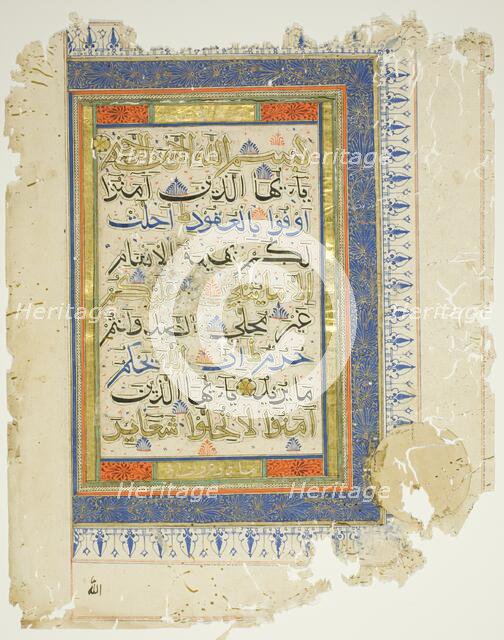 بسم الله الرحمن الرحيم
يا يها الذين امنوا
اوفوا بالعقود احلت
لكم بهيمة الانعام
الا ما يتلى عليكم
غير محلي الصيد وانتم
حرم ان الله يحكم
ما يريد يا يها الذين
امنوا لا تحلوا شعاير
الله
Heritage
Heritage
Heritage
Heritage
Heritage
Heritage